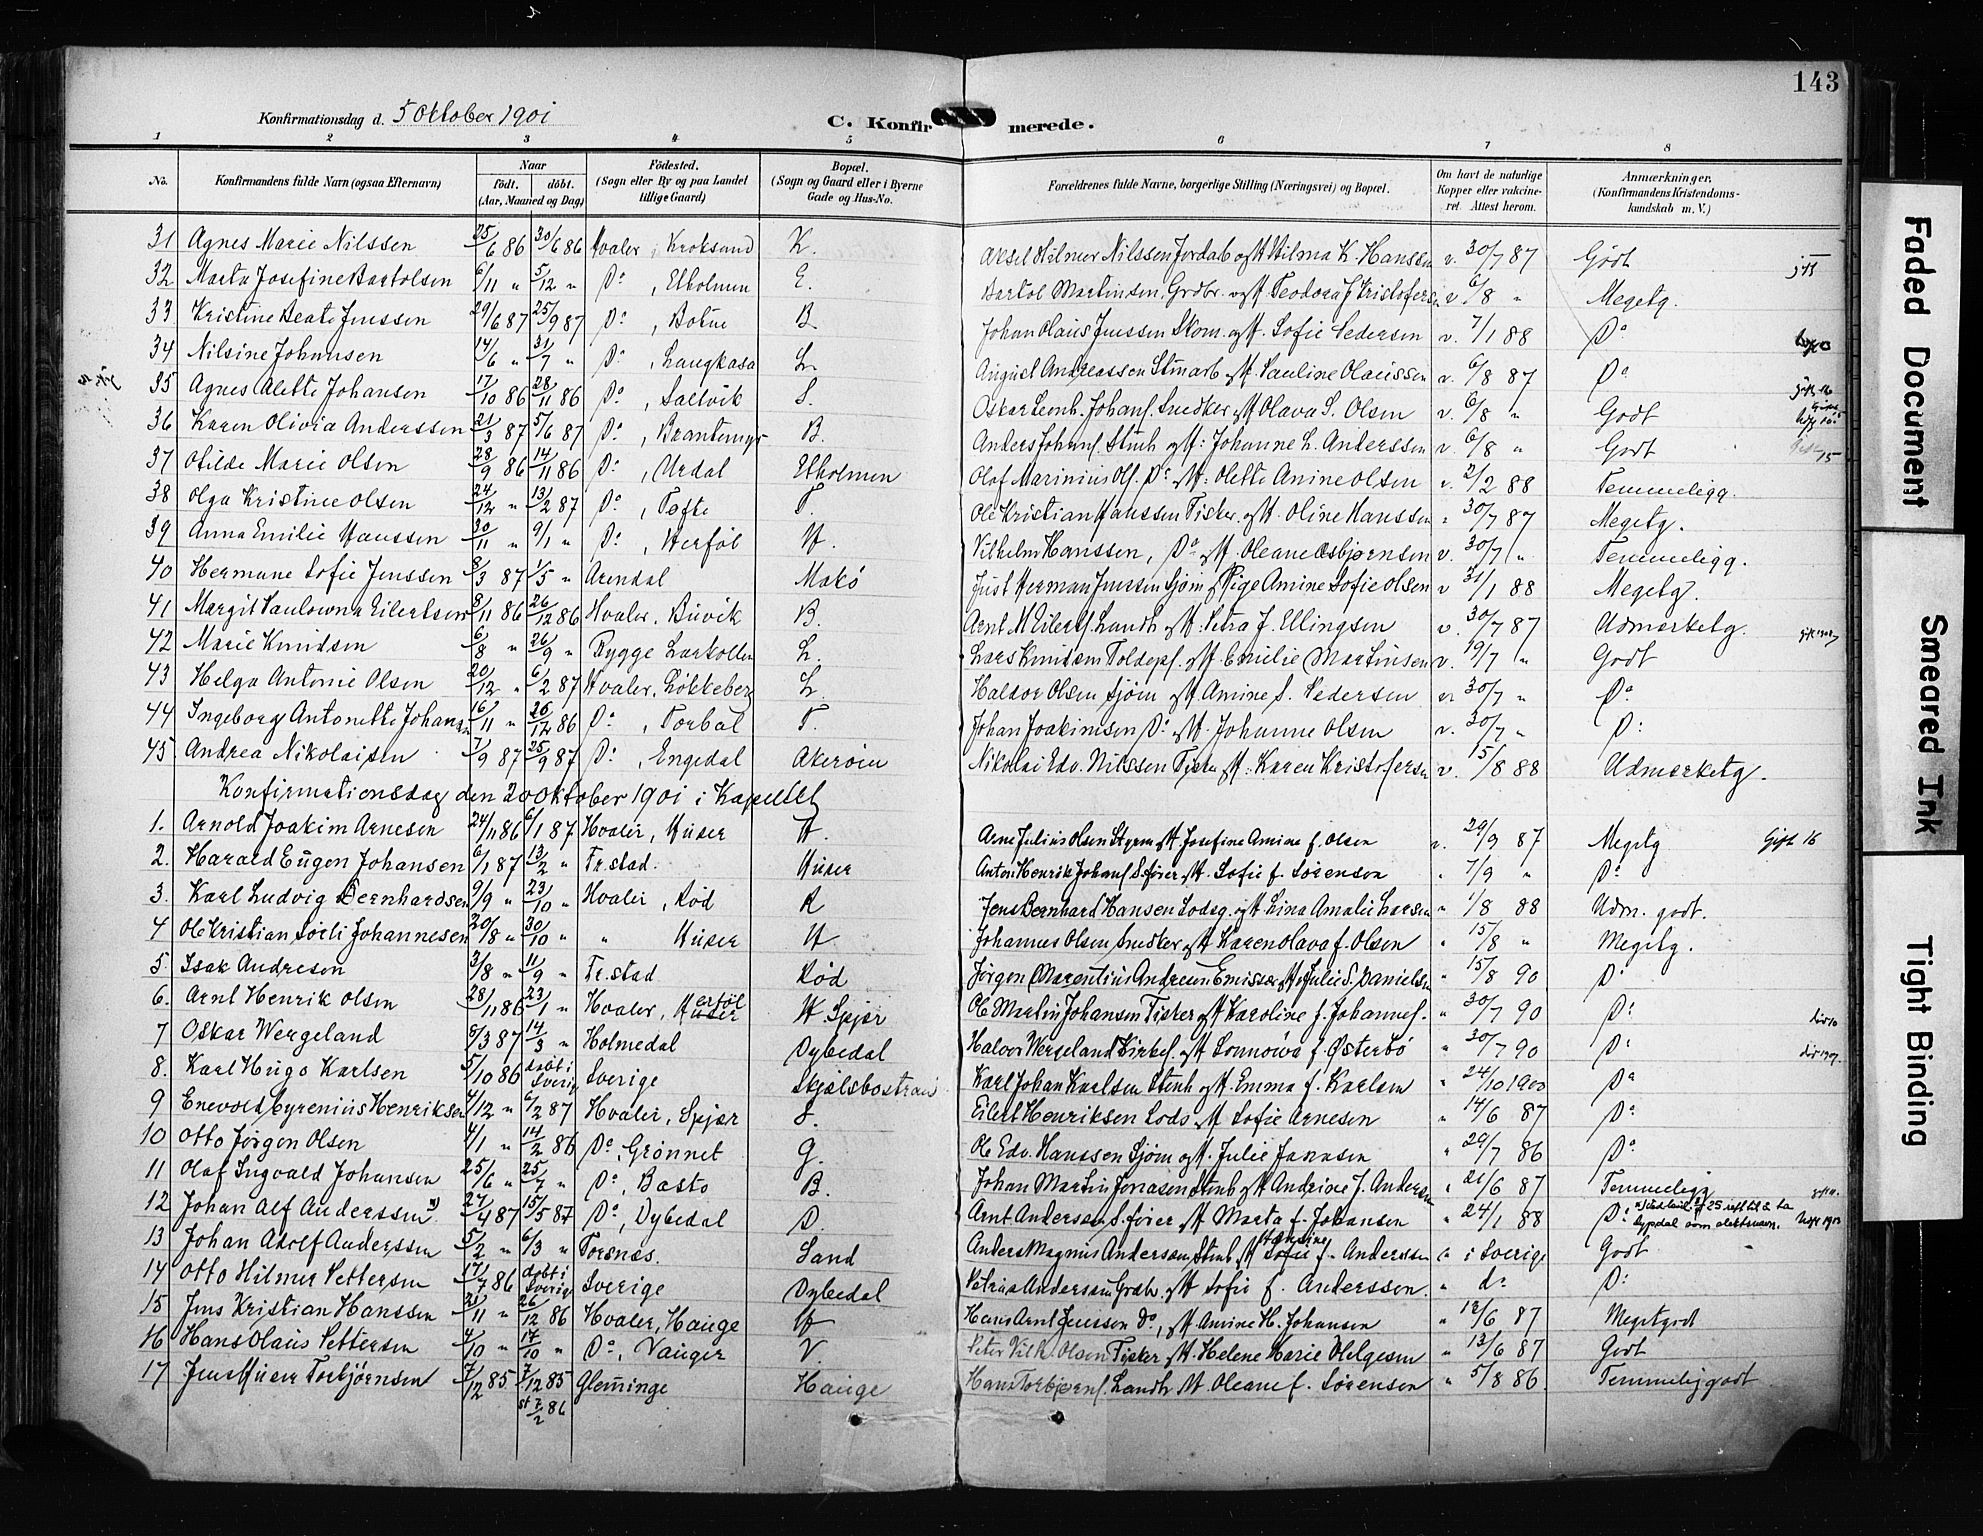 143
Konfirmationsdag d. 5 Oktober 1901
C. Konfirmerede.
1 2 3 4 5 6 7 8
No. Konfirmandens fulde Navn (ogsaa Efternavn) Naar födt. döbt. (Aar, Maaned og Dag) Födested. (Sogn eller By og paa Landet tillige Gaard) Bopæl. (Sogn og Gaard eller i Byerne Gade og Hus-No. Forældrenes fulde Navne, borgerlige Stilling (Næringsvei) og Bopæl. Om havt de naturlige Kopper eller vakcineret. Attest herom. Anmærkninger. (Konfirmandens Kristendomskundskab m. V.)
31 Agnes Marie Nilssen 25/6 86 30/6 86 Hvaler, Kroksund K. Aksel Hilmer Nilssen Jordarb og H. Hilma K. Hanssen v. 30/7 87 Godt
32 Marta Josefine Bartolsen 6/11 " 5/12 " Do, Ekholmen E. Bartol Martinsen Grdbr. og H. Teodora J. Kristofersen v 6/8 " Megetg.
33 Kristine Beate Jenssen 29/6 87 25/9 87 Do, Botne B. Johan Olaus Jenssen Skom. og H. Sofie Pedersen v. 7/1 88 Do
34 Nilsine Johansen 14/6 " 31/7 " Do, Langkasa L. August Andreassen Stenarb og H. Pauline Olaussen v. 6/8 87 Do
35 Agnes Alette Johansen 17/10 86 28/11 86 Do, Saltvik S. Oskar Leonh. Johans. Snedker og H Olava S. Olsen v. 6/8 " Godt
36 Karen Olivia Anderssen 21/3 87 5/6 87 Do, B. Anders Johans. Stenh og H: Johanne L. Anderssen v. 6/8 " Godt
37 Otilde Marie Olsen 28/9 86 14/11 86 Do, Urdal Ekholmen Olaf Marinius Ols. Do og H: Olette Amine Olsen v. 2/2 88 Temmeligg.
38 Olga Kristine Olsen 24/12 " 13/2 87 Do, Tofte T. Ole Kristian Hanssen Fisker. og H. Oline Hanssen " 30/7 87 Megetg.
39 Anna Emilie Hanssen 30/11 " 9/1 " Do, Herföl H. Vilhelm Hanssen, Do og H. Oleane Asbjørnsen v. 30/7 " Temmeligg.
40 Hermane Sofie Jenssen 8/3 87 1/5 " Arendal Makö Just Herman Jenssen Sjöm og Pige Amine Sofie Olsen v 31/1 88 Megetg.
41 Margit Paulowna Eilertsen 8/11 86 26/12 86 Hvaler, Buvik B. Arnt M Eilerts. Landh og H. Petra J. Ellingsen v. 30/7 87 Udmerketg.
42 Marie Knudsen 6/8 " 26/9 " Rygge Larkollen L. Lars Knudsen Toldops. og H Emilie Martinsen v. 19/7 " Godt
43 Helga Antonie Olsen 20/12 " 6/2 87 Hvaler, Lökkeberg L. Haldor Olsen Sjöm og H Amine S. Pedersen v. 30/7 " Do
44 Ingeborg Antonette Johansen 16/11 " 26/12 86 Do, Torbal T. Johan Joakimsen Do og H. Johanne Olsen v. 30/7 " Do
45 Andrea Nikolaisen 7/9 87 25/9 87 Do, Engedal Akeröien Nikolai Edv. Nilssen Fisker og H: Karen Kristofersen v. 15/8 88 Udmerketg.
Konfirmationsdag den 20 Oktober 1901 i Kapellet
1. Arnold Joakim Arnesen 24/11 86 6/1 87 Hvaler, Huser H. Arne Julius Olsen Styrm og H Josefine Amine f. Olsen v. 29/9 87 Megetg Gift 16
2. Harald Eugen Johansen 6/1 87 13/2 " Fr.stad. Huser Anton Henrik Johans S.förer og H. Sofie f. Sörensen " 7/9 " Do
3. Karl Ludvig Bernhardsen 9/9 " 23/10 " Hvaler, Röd R Jens Bernhard Hansen Lodsg. og H. Lina Amalie Larsen " 1/8 88 Udm. godt.
4 Ole Kristian Sörli Johannesen 20/8 " 30/10 " " Huser H Johannes Olsen Snedker og H Karen Olava f. Olsen " 15/8 " Megetg.
5. Isak Andresen 3/8 " 11/9 " Fr.stad Röd Jörgen Marentius Andresen Emissær og H. Julie S. Danielsen " 15/8 90 Do
6. Arnt Henrik Olsen 28/11 86 23/1 " Hvaler, Herföl H. Spjær Ole Martin Johansen Fisker og H Karoline f. Johannes. " 30/7 90 Do
7 Oskar Wergeland 8/3 87 14/3 " Holmedal Dybedal Halvor Wergeland Kirkes. og H. f. Østerbö " 30/7 90 Do
8. Karl Hugo Karlsen 5/10 86 döbt i Sverig Sverige Skjælsbostrand Karl Johan Karlsen Stenh og H. Emma f. Karlsen " 24/10 1900 Do
9 Enevold Cyrenius Henriksen 4/12 " 6/2 87 Hvaler, Spjær S. Eilert Henriksen Lods og H Sofie Arnesen " 14/6 87 Do
10 Otto Jörgen Olsen 4/1 " 14/2 86 Do, Grönnet G. Ole Edv. Hanssen Sjöm og H. Julie Jansen " 29/7 86 Do
11 Olaf Ingvald Johansen 25/6 " 25/7 " Do, Basto B. Johan Martin Jonasen Stenh og H Andrine J. Andersen " 21/6 87 Temmeligg
12 Johan Alf Anderssen x) 27/4 87 15/5 87 Do, Dybedal D. Arnt Andersen S.förer og H Marta f. Johansen " 24/1 88 Do
13 Johan Adolf Anderssen 5/2 " 6/3 " Torsnæs. Sand Anders Magnus Andersen Stenh og H Sofie f. Anderssen " i Sverige Godt
14 Otto Hilmer Pettersen 17/7 86 döbt i Sverig Sverige Dybedal Andersen Grdbr. og H Sofie f. Anderssen. " do Do
15 Jens Kristian Hanssen 21/11 " 26/12 86 Hvaler, Hauge H Hans Arnt Jenssen Do, og H Amine H. Johansen " 12/6 87 Megetgodt
16 Hans Olaus Pettersen 4/10 " 17/10 " Do, Vauger V. Peter Vilh. Olsen Fisker og H. Helene Marie Helgesen " 13/6 87 Godt
17 Jens Huser Torbjörnsen 7/12 85 7/12 85 st 7/2 86 Glemminge Hauge Hans Torbjörns. Landh og H Oleane f. Sörensen " 5/8 86 Temmeliggodt
Faded Document
Smeared Ink
Tight Binding